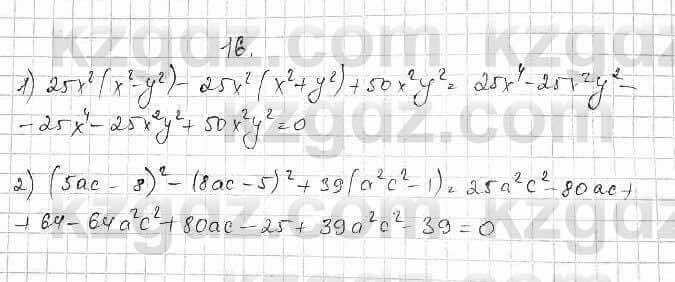 16.
1) 25x²(x²-y²)- 25x²(x²+y²)+50x²y²= 25x⁴-25x²y²-
-25x⁴-25x²y²+50x²y²=0
2) (5ac - 8)²-(8ac-5)²+39(a²c²-1)= 25a²c²-80ac+
+64-64a²c²+80ac-25+39a²c²-39=0
kzgdz.com kzgdz.com
kzgdz.com
kzgdz.com